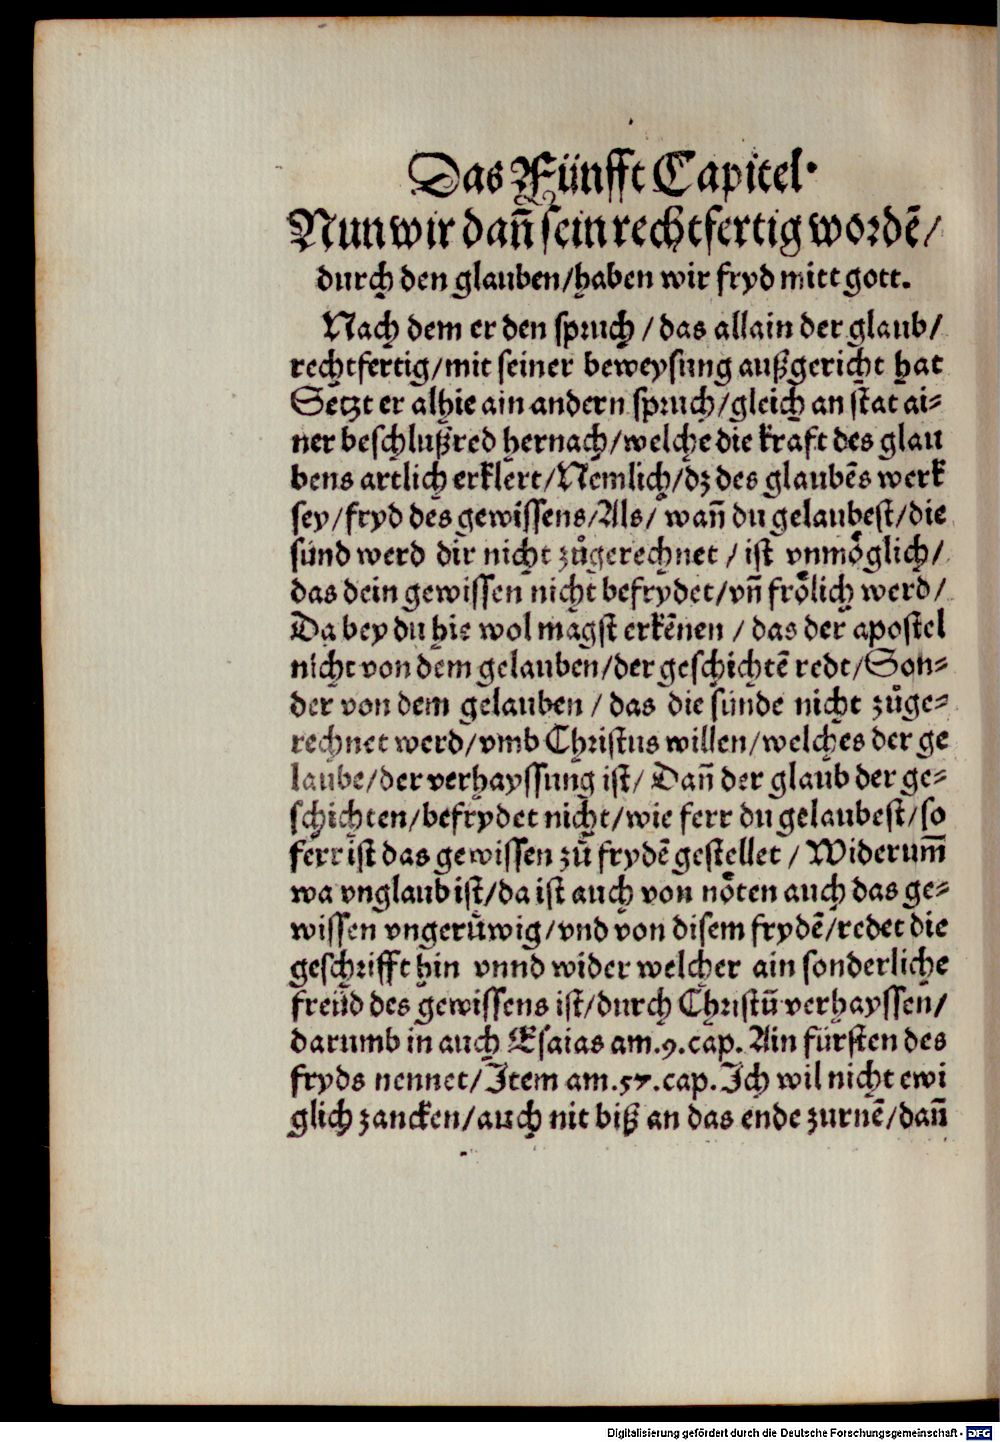 Das Fünfft Capitel·
Nun wir dañ sein rechtfertig wordē/
durch den glauben/haben wir fryd mitt gott.
Nach dem er den spruch/das allain der glaub/
rechtfertig/mit seiner beweysung außgericht hat
Setzt er alhie ain andern spruch/gleich an stat ai-
ner beschlußred hernach/welche die kraft des glau
bens artlich erklert/Nemlich/dz des glaubēs werk
sey/fryd des gewissens/Als/wañ du gelaubest/die
sünd werd dir nicht zůgerechnet/ist vnmöglich/
das dein gewissen nicht befrydet/vñ frölich werd/
Da bey du hie wol magst erkēnen/das der apostel
nicht von dem gelauben/der geschichtē redt/Son-
der von dem gelauben/das die sünde nicht zůge-
rechnet werd/vmb Christus willen/welches der ge
laube/der verhayssung ist/Dañ der glaub der ge-
schichten/befrydet nicht/wie ferr du gelaubest/so
ferr ist das gewissen zů frydē gestellet/Widerum̃
wa vnglaub ist/da ist auch von nöten auch das ge-
wissen vngerůwig/vnd von disem frydē/redet die
geschrifft hin vnnd wider welcher ain sonderliche
freüd des gewissens ist/durch Christū verhayssen/
darumb in auch Esaias am.9.cap.Ain fürsten des
fryds nennet/Item am.57.cap.Ich wil nicht ewi
glich zancken/auch nit biß an das ende zurnē/dañ
Digitalisierung gefördert durch die Deutsche Forschungsgemeinschaft - DFG